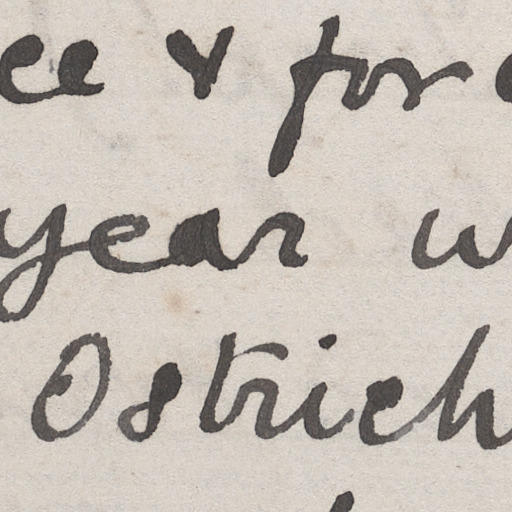 ce & for
year w
Ostrich